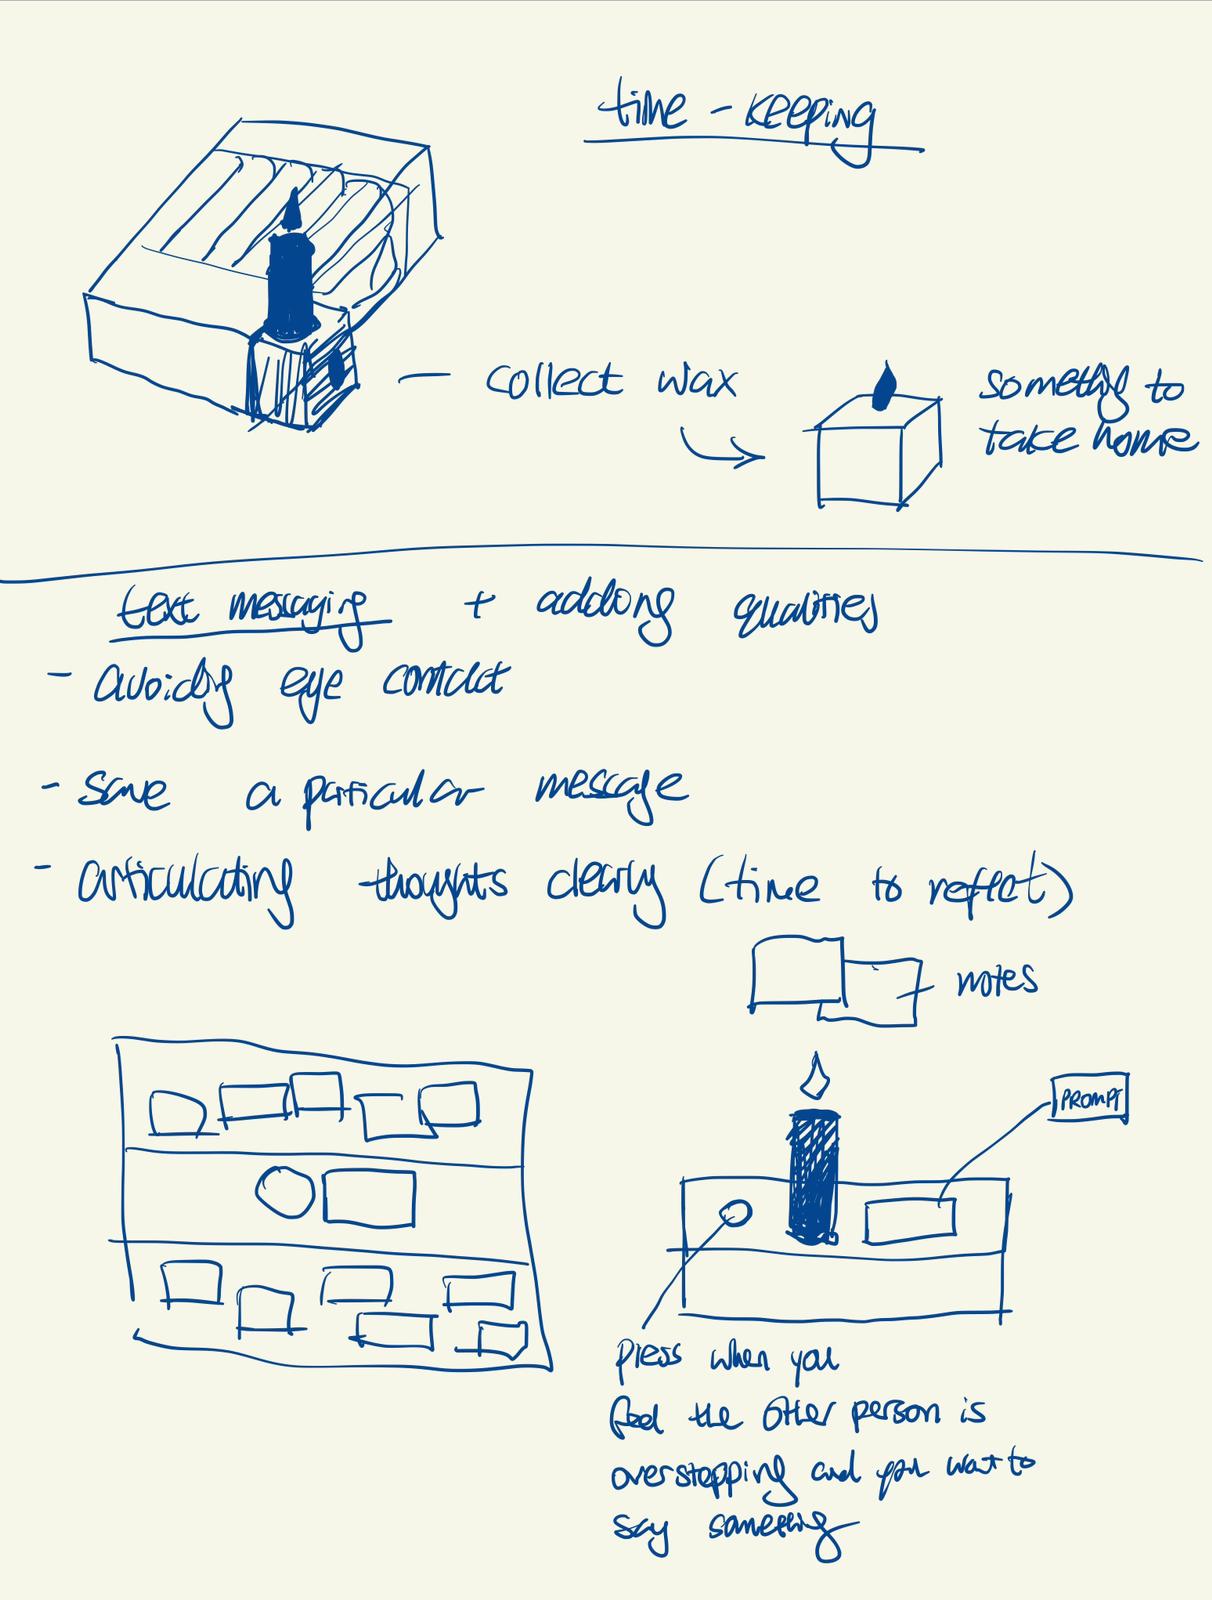 time - keeping
- collect wax
something to
take home
text messaging + adding qualities
- avoiding eye contact
- save a particular message
- articulating thoughts clearly (time to reflect)
notes
PROMPT
press when you
feel the other person is
overstepping and you want to
say something